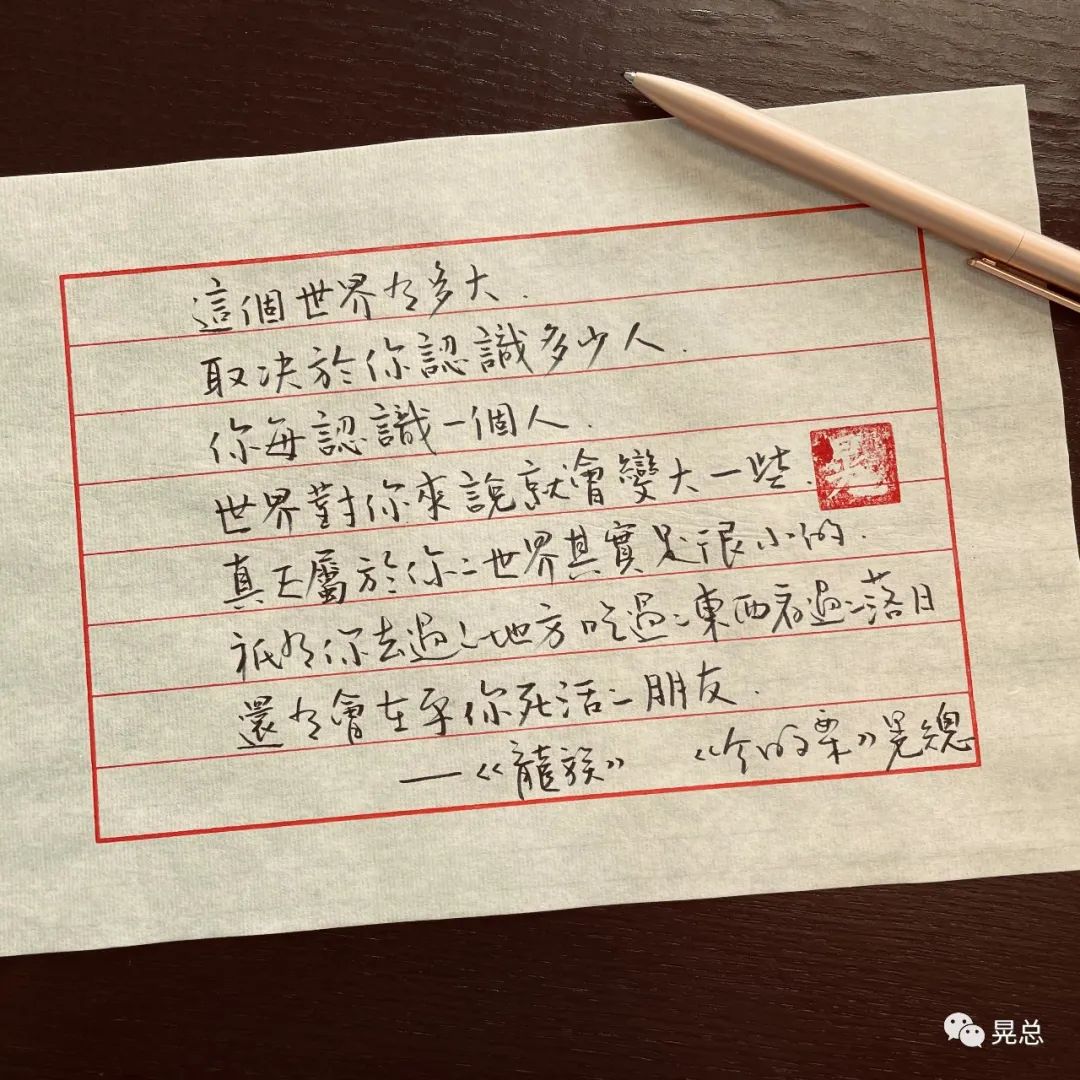 這個世界有多大.
取决於你認識多少人.
你每認識一個人.
世界對你來說就會變大一些.
真正屬於你的世界其實是很小的.
祇有你去過的地方吃過的東西看過的落日
還有會在乎你死活的朋友.
—《龍族》 《今的栗》晃總
晃
晃总